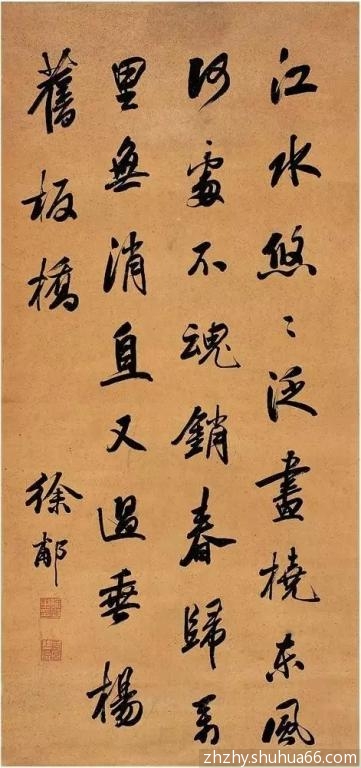 江水悠〻泛畫橈東風
何處不魂銷春歸萬
里無消息又過垂楊
舊板橋
徐郙
zhzhy.shuhua66.com